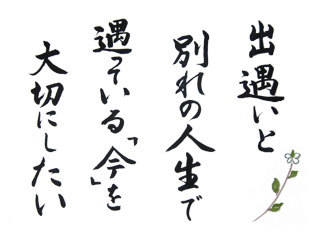 出遇いと
別れの人生で
遇っている「今」を
大切にしたい